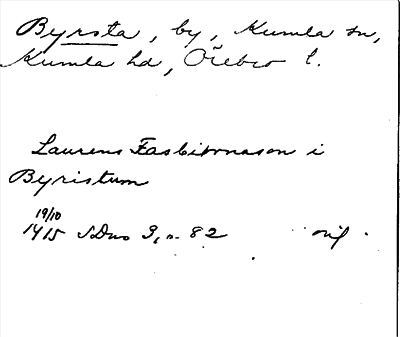 Byrsta, by, Kumla sn,
Kumla hd, Örebro l.
Laurens Fasbiornason i
Byristum
19/10
1415 SDns 3, n. 82 orig.